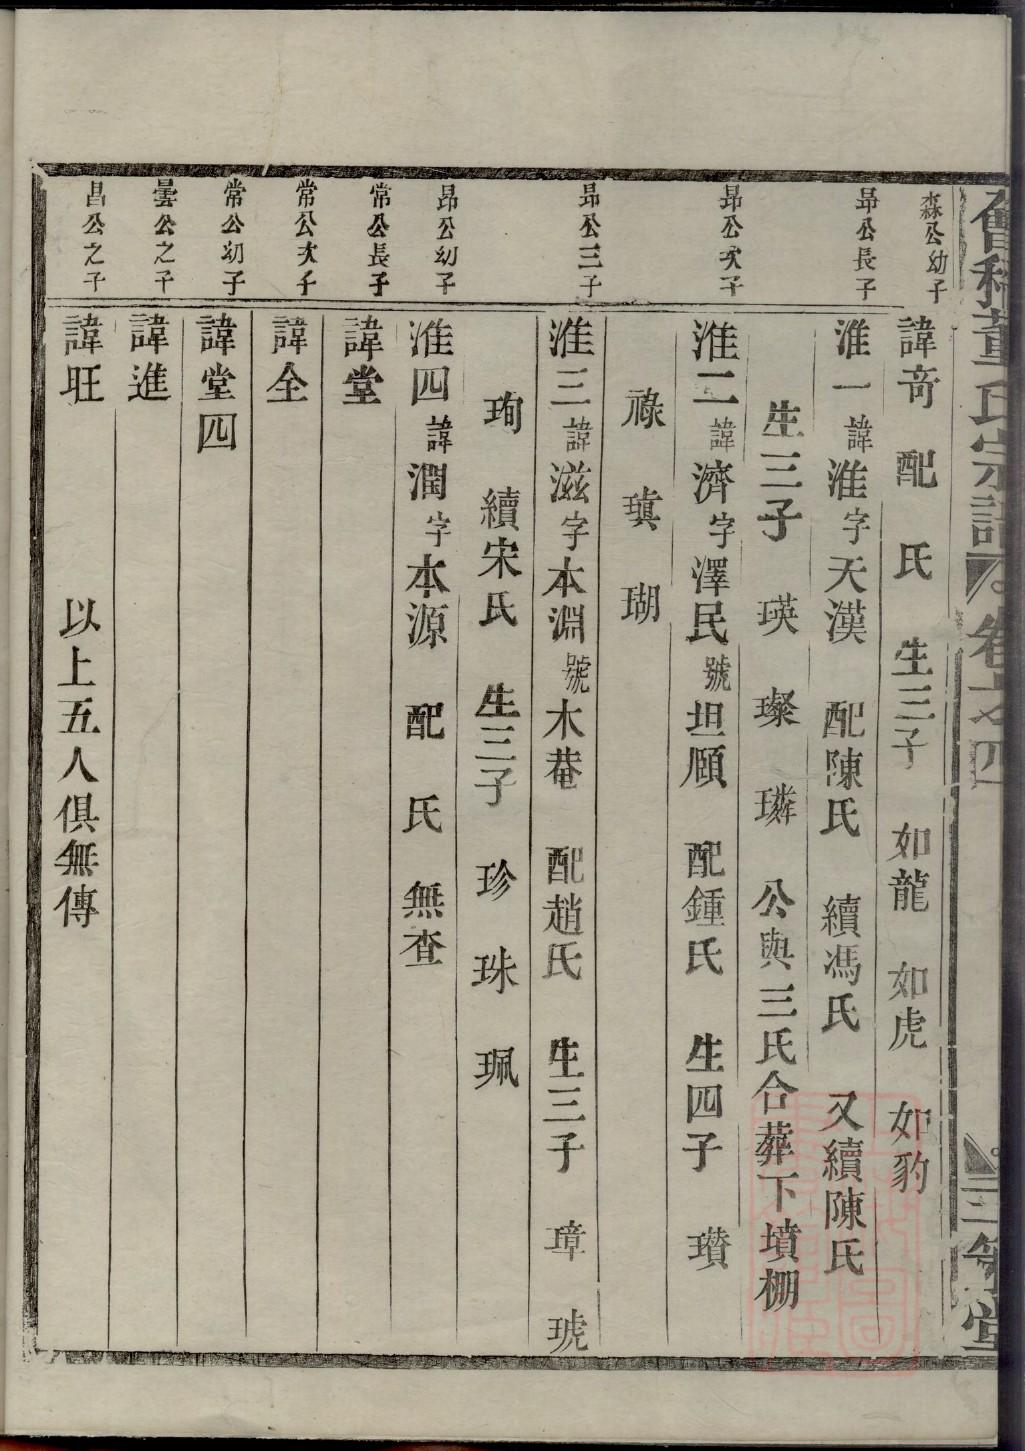 會稽董氏宗譜 卷十四
森公幼子
諱奇 配 氏 生三子 如龍 如虎 如豹
昂公長子
淮一諱淮字天漢 配陳氏 續馮氏 又續陳氏
生三子 瑛 璨 璘 公與三氏合葬下墳棚
昂公次子
淮二諱濟字澤民號坦頤 配鍾氏 生四子 瓚
祿 瑱 瑚
昂公三子
淮三諱滋字本淵號木菴 配趙氏 生三子 璋 琥
珣 續宋氏 生三子 珍 珠 珮
昂公幼子
淮四諱潤字本源 配 氏 無查
常公長子
諱堂
常公次子
諱全
常公幼子
諱堂四
曇公之子
諱進
昌公之子
諱旺 以上五人俱無傳